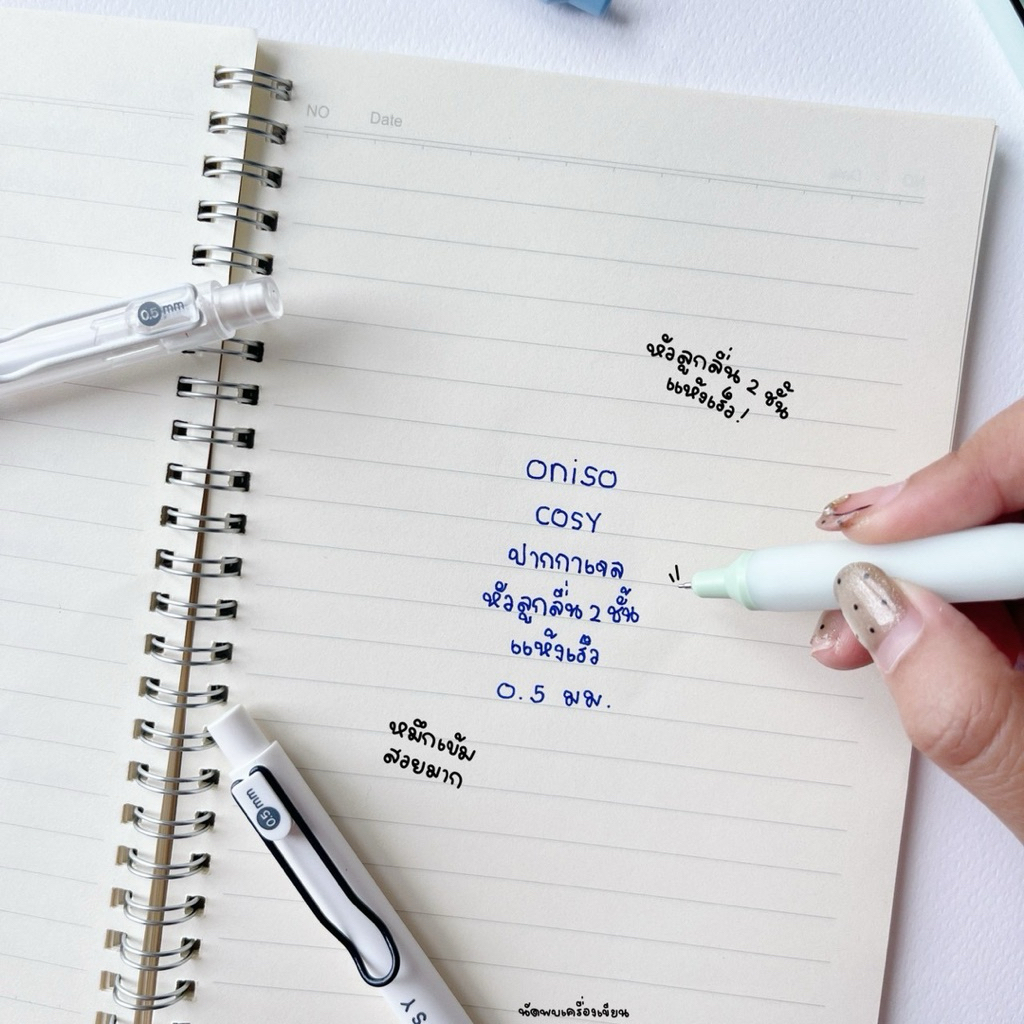 NO Date
0.5 mm
หัวลูกลื่น 2 ชั้น
แห้งเร็ว!
oniso
COSY
ปากกาเจล
หัวลูกลื่น 2 ชั้น
แห้งเร็ว
0.5 มม.
หมึกเข้ม
สวยมาก
0.5 mm
SY
นัดพบเครื่องเขียน